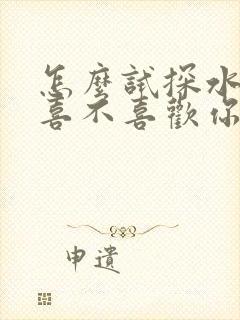 怎麼試探水
喜不喜歡你
申遺